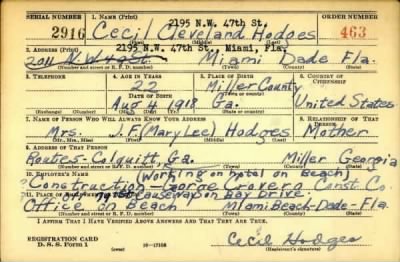 SERIAL NUMBER 1. NAME (Print) 2195 N.W. 47th St. ORDER NUMBER
2916 Cecil Cleveland Hodges 463
(First) (Middle) (Last)
2. ADDRESS (Print) 2195 N.W. 47th St. Miami, Fla.
Miami Dade Fla.
(Number and street or R. F. D. number) (Town) (County) (State)
3. TELEPHONE 4. AGE IN YEARS 5. PLACE OF BIRTH 6. COUNTRY OF CITIZENSHIP
22 Miller County
DATE OF BIRTH (Town or county)
Aug 4 1918 Ga. United States
(Exchange) (Number) (Mo.) (Day) (Yr.) (State or country)
7. NAME OF PERSON WHO WILL ALWAYS KNOW YOUR ADDRESS 8. RELATIONSHIP OF THAT PERSON
Mrs. J.F. (Mary Lee) Hodges Mother
(Mr., Mrs., Miss) (First) (Middle) (Last)
9. ADDRESS OF THAT PERSON
Route 5 - Colquitt, Ga. Miller Georgia
(Number and street or R. F. D. number) (Town) (County) (State)
10. EMPLOYER'S NAME (Working on hotel on Beach)
Construction - Const. Co.
11. PLACE OF EMPLOYMENT OR BUSINESS Off Causeway on Bay Drive
Office on Beach Miami Beach - Dade - Fla.
(Number and street or R. F. D. number) (Town) (County) (State)
I AFFIRM THAT I HAVE VERIFIED ABOVE ANSWERS AND THAT THEY ARE TRUE.
REGISTRATION CARD
D. S. S. Form 1 (over) 16—17105 Cecil Hodges
(Registrant's signature)